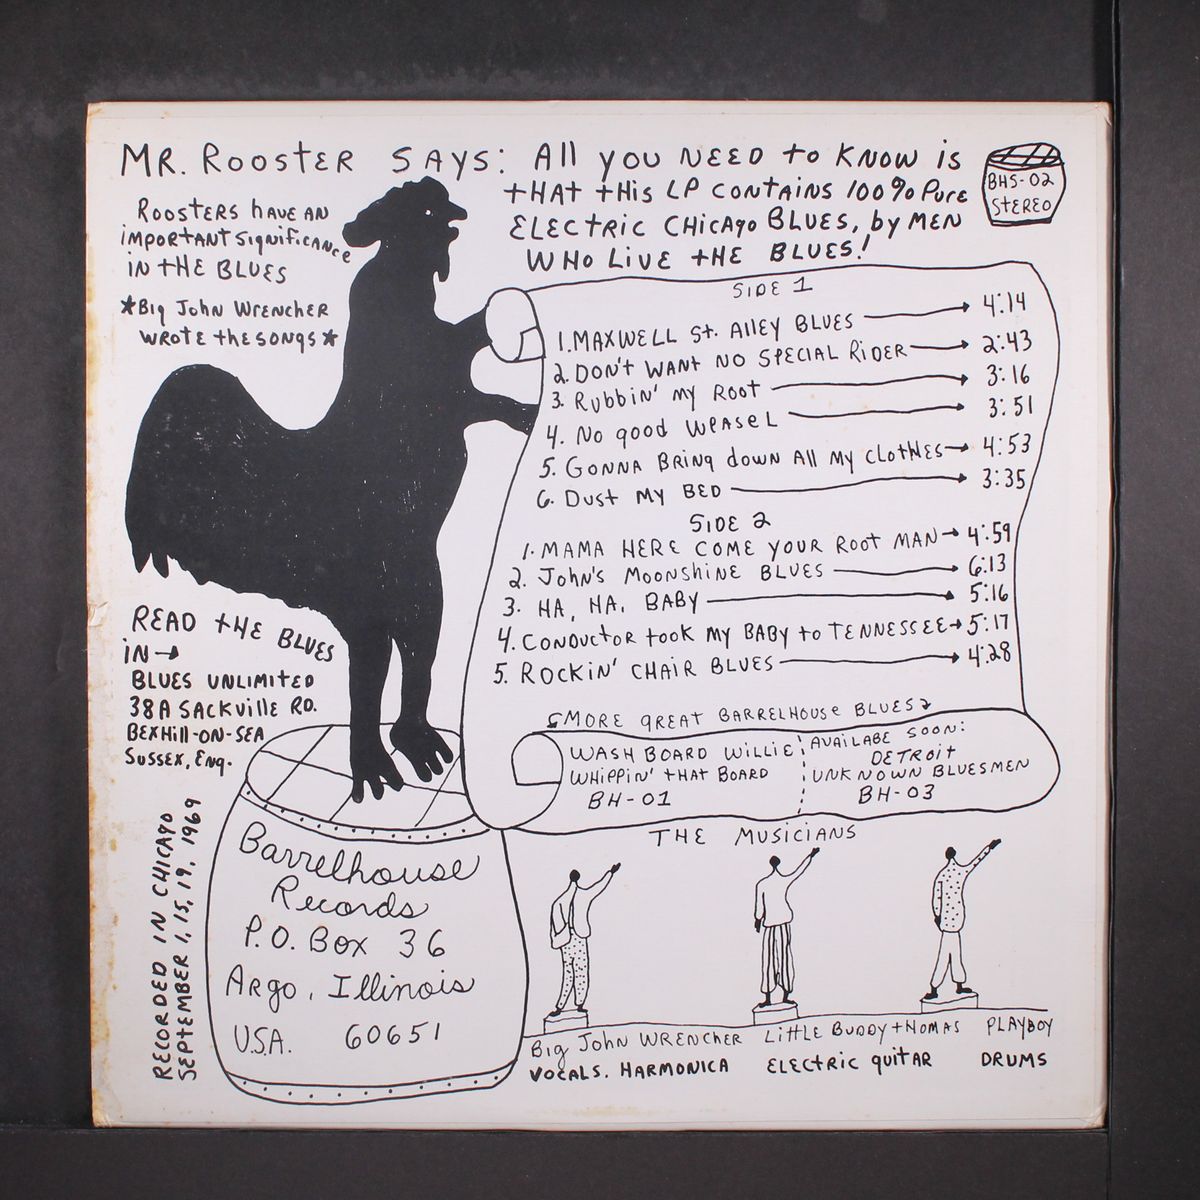 MR. ROOSTER SAYS: All YOU NEED to KNOW is
tHAT tHis LP CONTAINS 100% PURE
ELECTRIC CHICAGO BLUES, by MEN
WHO LIVE tHE BLUES!
BHS-02
STEREO
ROOSTERS HAVE AN
IMPORTANT SIGNIFICANCE
IN tHE BLUES
*Big John WRENCHER
WROTE the SONGS*
SIDE 1
1. MAXWELL St. Alley BLUES → 4:14
2. DON'T WANT NO SPECIAL RIDER → 2:43
3. RUBBIN' MY ROOT → 3:16
4. No good WEASEL → 3:51
5. GONNA BRING down All MY CLOTHES → 4:53
6. DUST MY BED → 3:35
SIDE 2
1. MAMA HERE COME YOUR ROOT MAN → 4:59
2. JOHN'S MOONSHINE BLUES → 6:13
3. HA, HA, BABY → 5:16
4. CONDUCTOR took MY BABY to TENNESSEE → 5:17
5. ROCKIN' CHAIR BLUES → 4:28
MORE GREAT BARRELHOUSE BLUES
WASH BOARD WILLIE
WHIPPIN' tHAT BOARD
BH-01
AVAILABE SOON:
DETROIT
UNKNOWN BLUESMEN
BH-03
READ tHE BLUES
IN →
BLUES UNLIMITED
38A SACKVIllE RD.
BEXHill-ON-SEA
SUSSEX, ENG.
RECORDED IN CHICAGO
SEPTEMBER 1, 15, 19, 1969
Barrelhouse
Records
P.O. Box 36
Argo, Illinois
U.S.A. 60651
THE MUSICIANS
Big John WRENCHER
VOCALS. HARMONICA
LittLE BUDDY tHOMAS
ELECTRIC guitAR
PLAYBOY
DRUMS